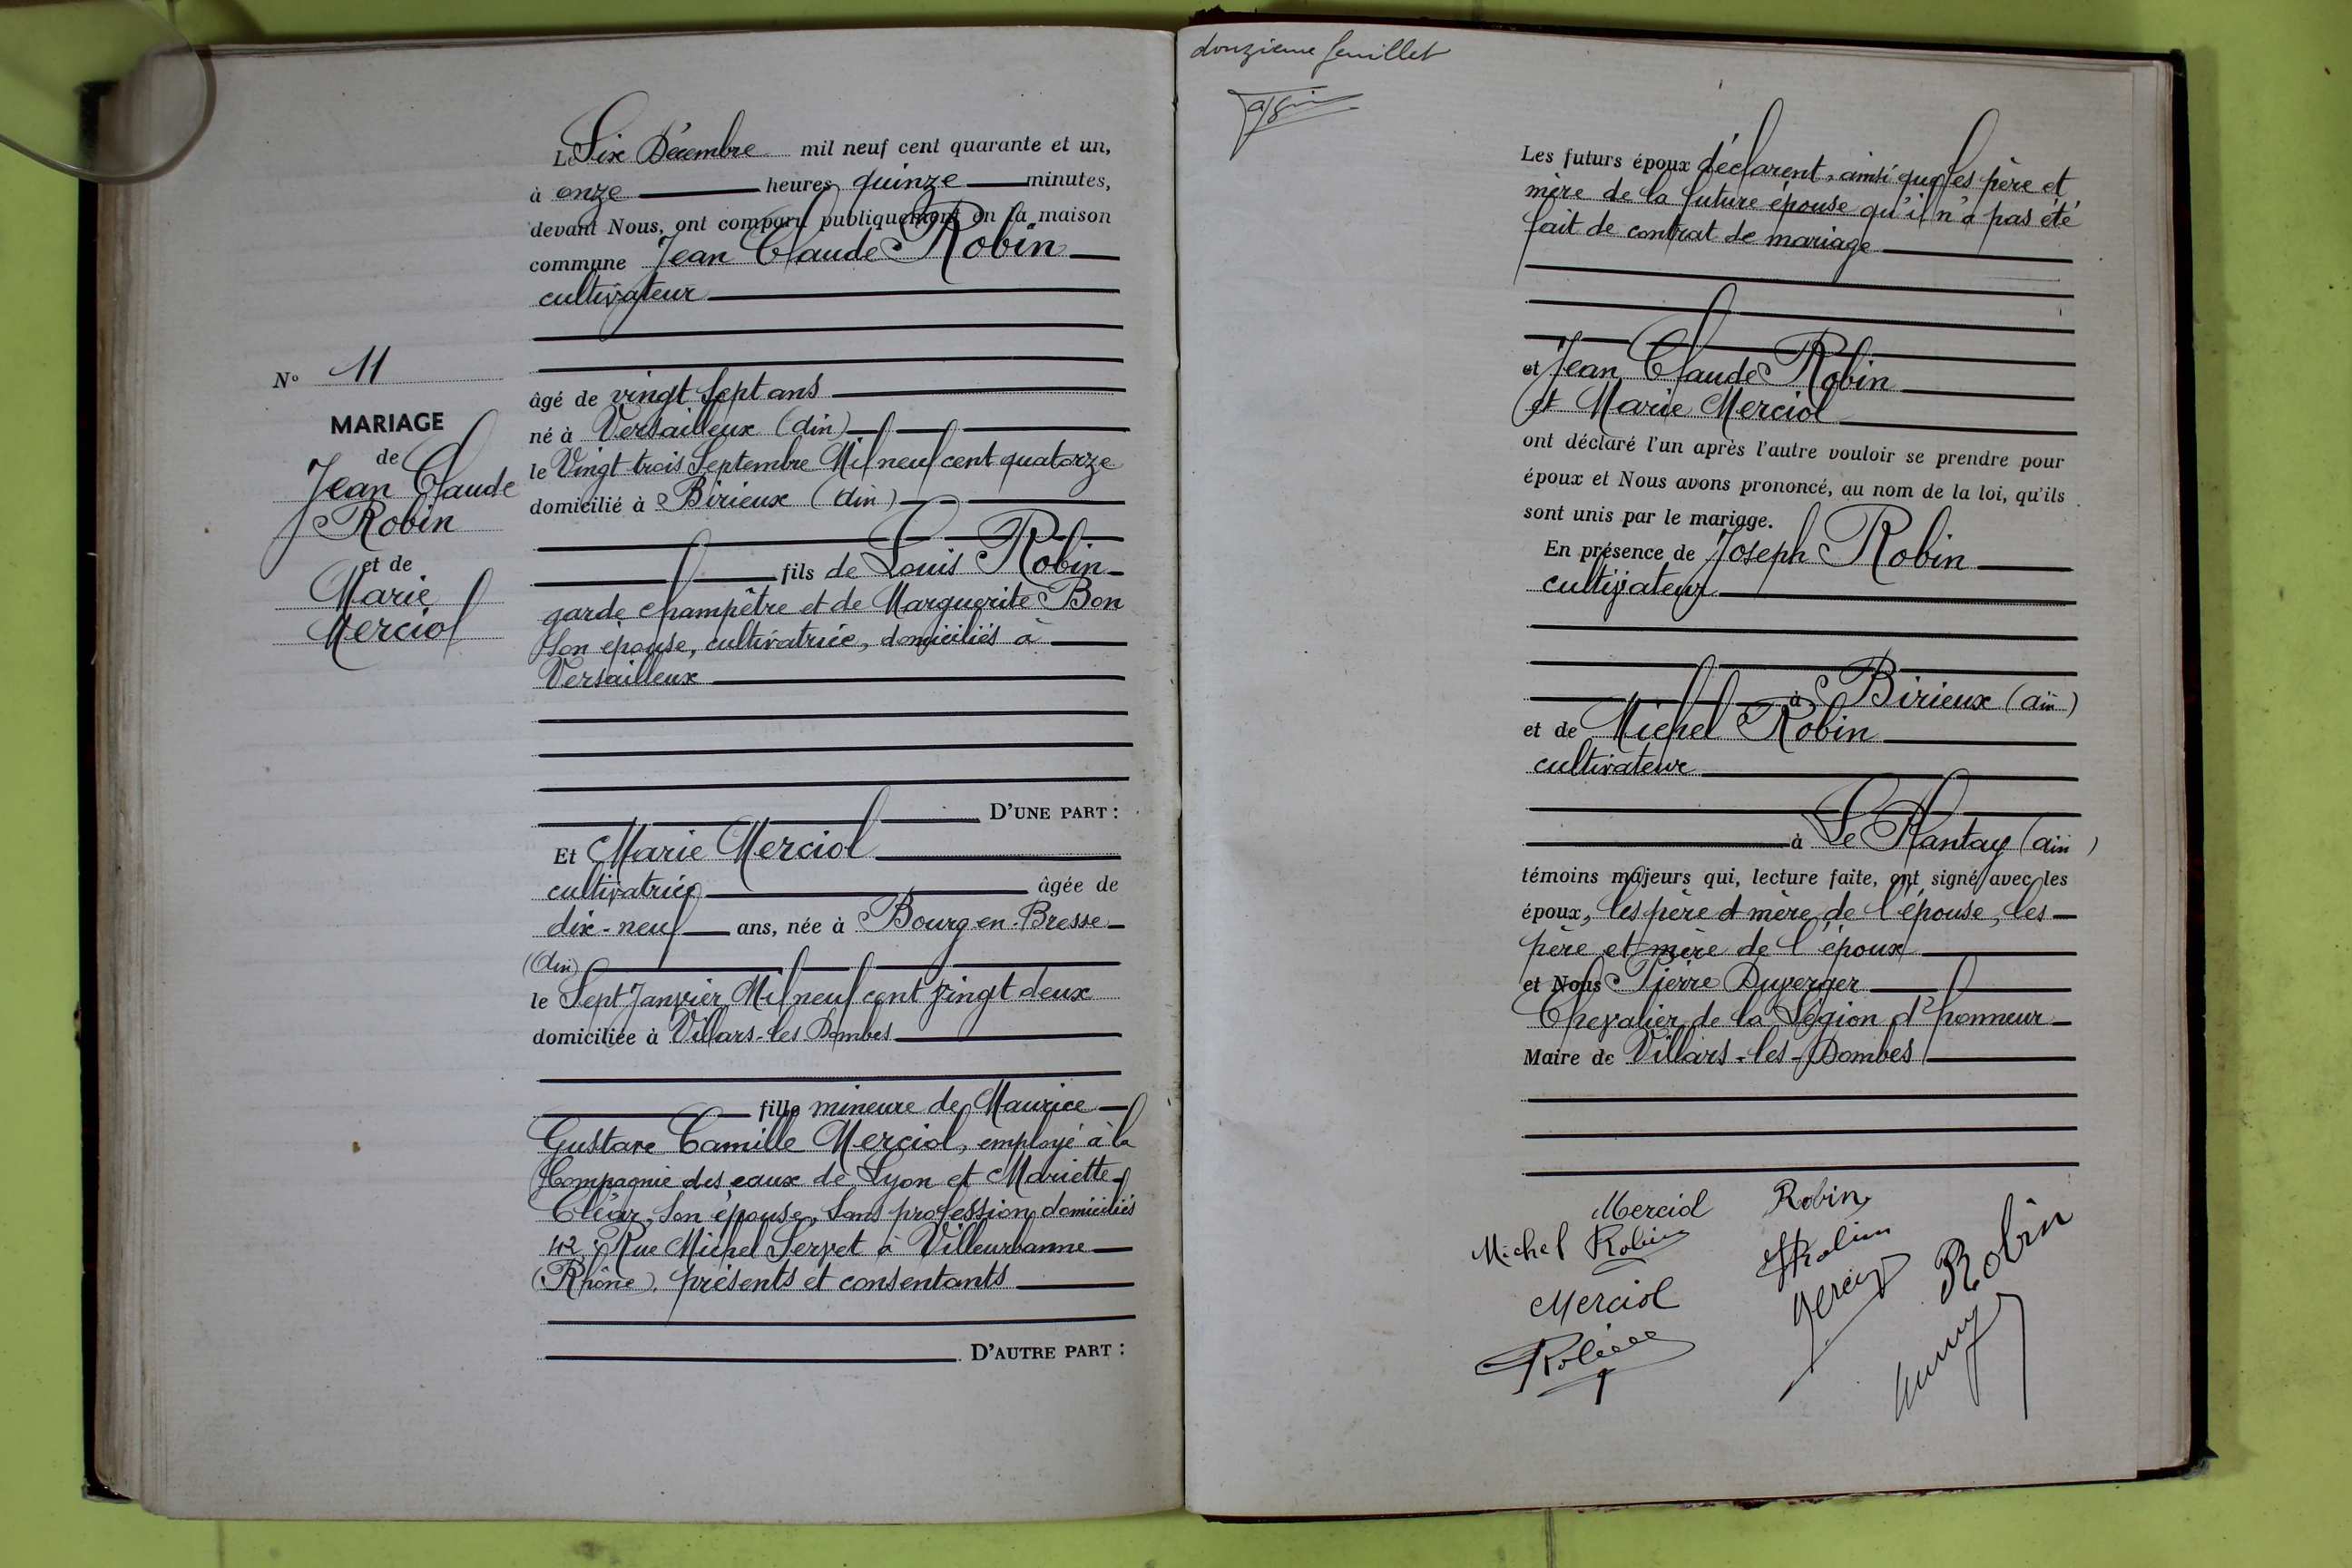 N° 11
MARIAGE
de
Jean Claude
Robin
et de
Marie
Merciol
Le Six Décembre mil neuf cent quarante et un,
à onze heures quinze minutes,
devant Nous, ont comparu publiquement en la maison
commune Jean Claude Robin
cultivateur
âgé de vingt sept ans
né à Versailleux (Ain)
le Vingt-trois Septembre Mil neuf cent quatorze
domicilié à Birieux (Ain)
fils de Louis Robin
garde champêtre et de Marguerite Bon
son épouse, cultivatrice, domiciliés à
Versailleux
D'UNE PART :
Et Marie Merciol
cultivatrice âgée de
dix-neuf ans, née à Bourg-en-Bresse
(Ain)
le Sept Janvier Mil neuf cent vingt deux
domiciliée à Villars-les Dombes
fille mineure de Maurice
Gustave Camille Merciol, employé à la
Compagnie des eaux de Lyon et Mariette
son épouse, sans profession domiciliés
42, Rue Michel Servet à Villeurbanne
(Rhône), présents et consentants
D'AUTRE PART :
douzieme feuillet
Les futurs époux déclarent, ainsi que les père et
mère de la future épouse qu'il n'a pas été
fait de contrat de mariage
et Jean Claude Robin
et Marie Merciol
ont déclaré l'un après l'autre vouloir se prendre pour
époux et Nous avons prononcé, au nom de la loi, qu'ils
sont unis par le mariage.
En présence de Joseph Robin
cultivateur
à Birieux (Ain)
et de Michel Robin
cultivateur
à Le Plantay (Ain)
témoins majeurs qui, lecture faite, ont signé avec les
époux, les père et mère de l'épouse, les
père et mère de l'époux
et Nous Pierre Duverger
Chevalier de la Légion d'honneur
Maire de Villars-les-Dombes
Merciol Robin
Michel Robin JRobin
Merciol Robin
Robin